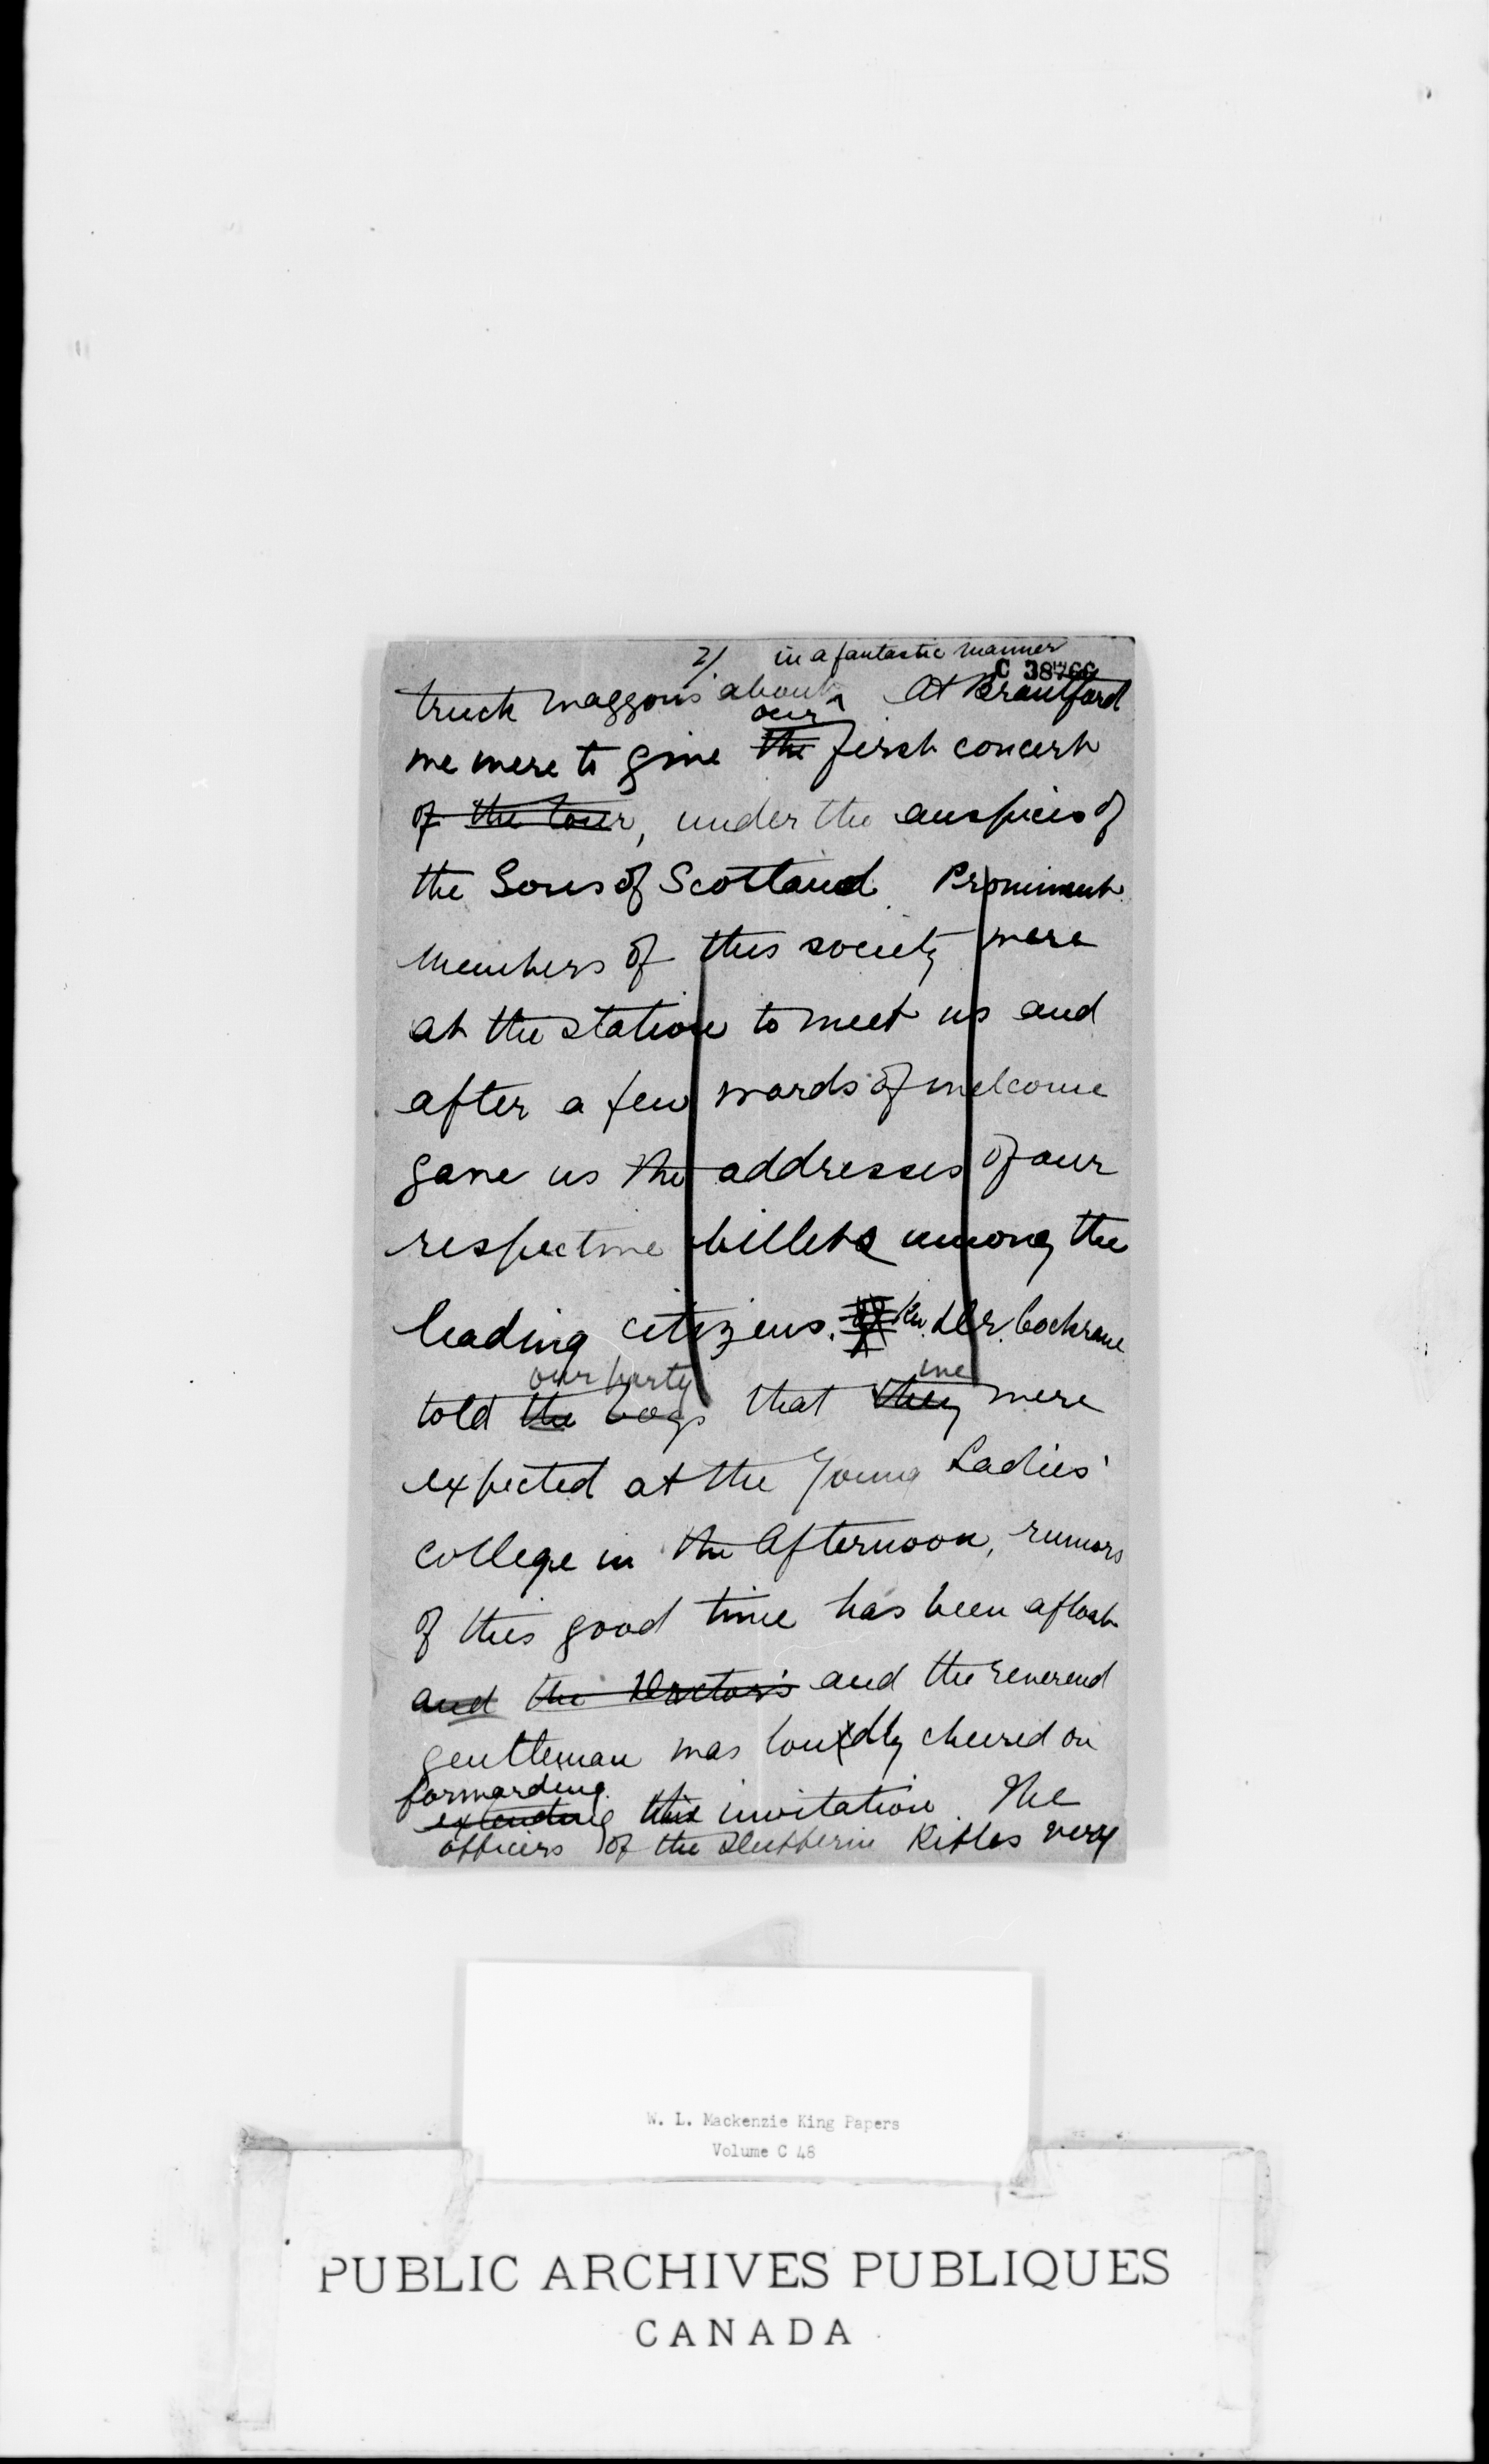 2/ in a fantastic manner
C 38766
truck waggons about ^ At Brantford
our
we were to give the first concert
of the tour, under the auspices of
the Sons of Scotland. Prominent
members of this society were
at the station to meet us and
after a few words of welcome
gave us the addresses of our
respective billets among the
leading citizens. Rev. Dr. Cochrane
our party we
told the boys that they were
expected at the Young Ladies'
College in the afternoon, rumors
of this good time has been afloat
and the Doctor's and the reverend
gentleman was loudly cheered on
forwarding
extending this invitation. The
officers of the Dufferin Rifles very
W. L. Mackenzie King Papers
Volume C 48
PUBLIC ARCHIVES PUBLIQUES
CANADA